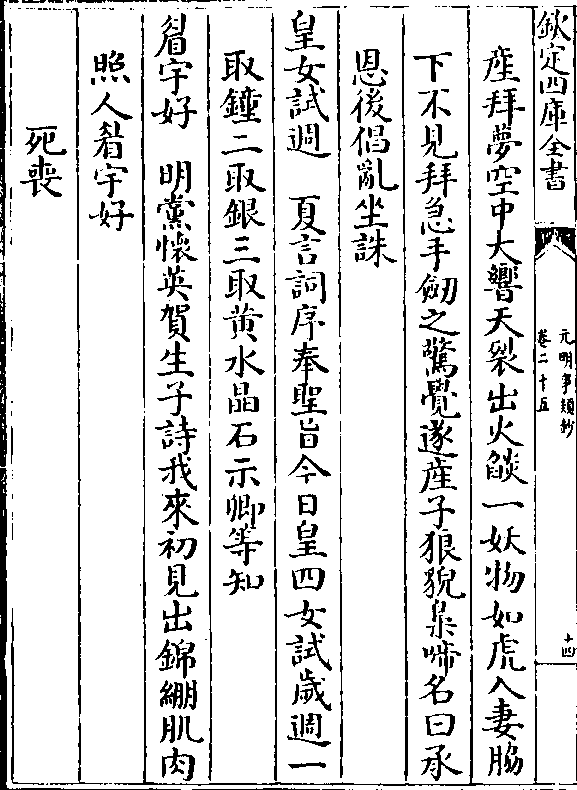 欽定四庫全書
元明事類鈔
卷二十五
十四
産拜夢空中大響天裂出火燄一妖物如虎入妻脇
下不見拜急手劒之驚覺遂産子狼貌梟啼名曰承
恩後倡亂坐誅
皇女試週　夏言詞序奉聖旨今日皇四女試歲週一
取鐘二取銀三取黄水晶石示卿等知
眉宇好　明黨懷英賀生子詩我來初見出錦繃肌肉
照人眉宇好
死喪